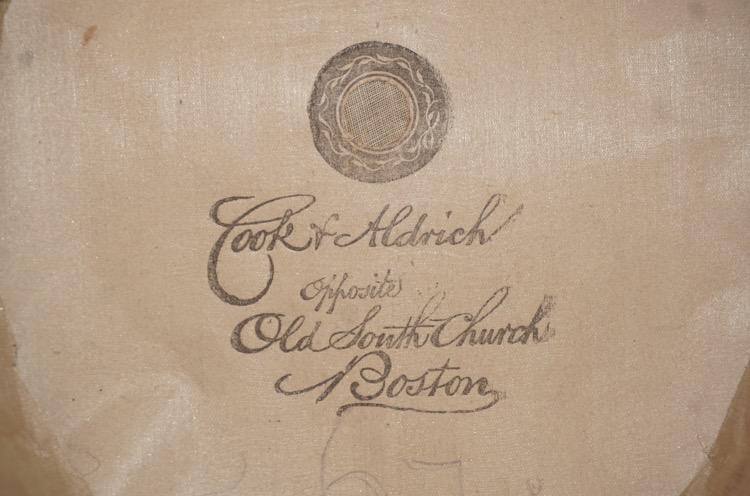 Cook & Aldrich
Opposite
Old South Church
Boston